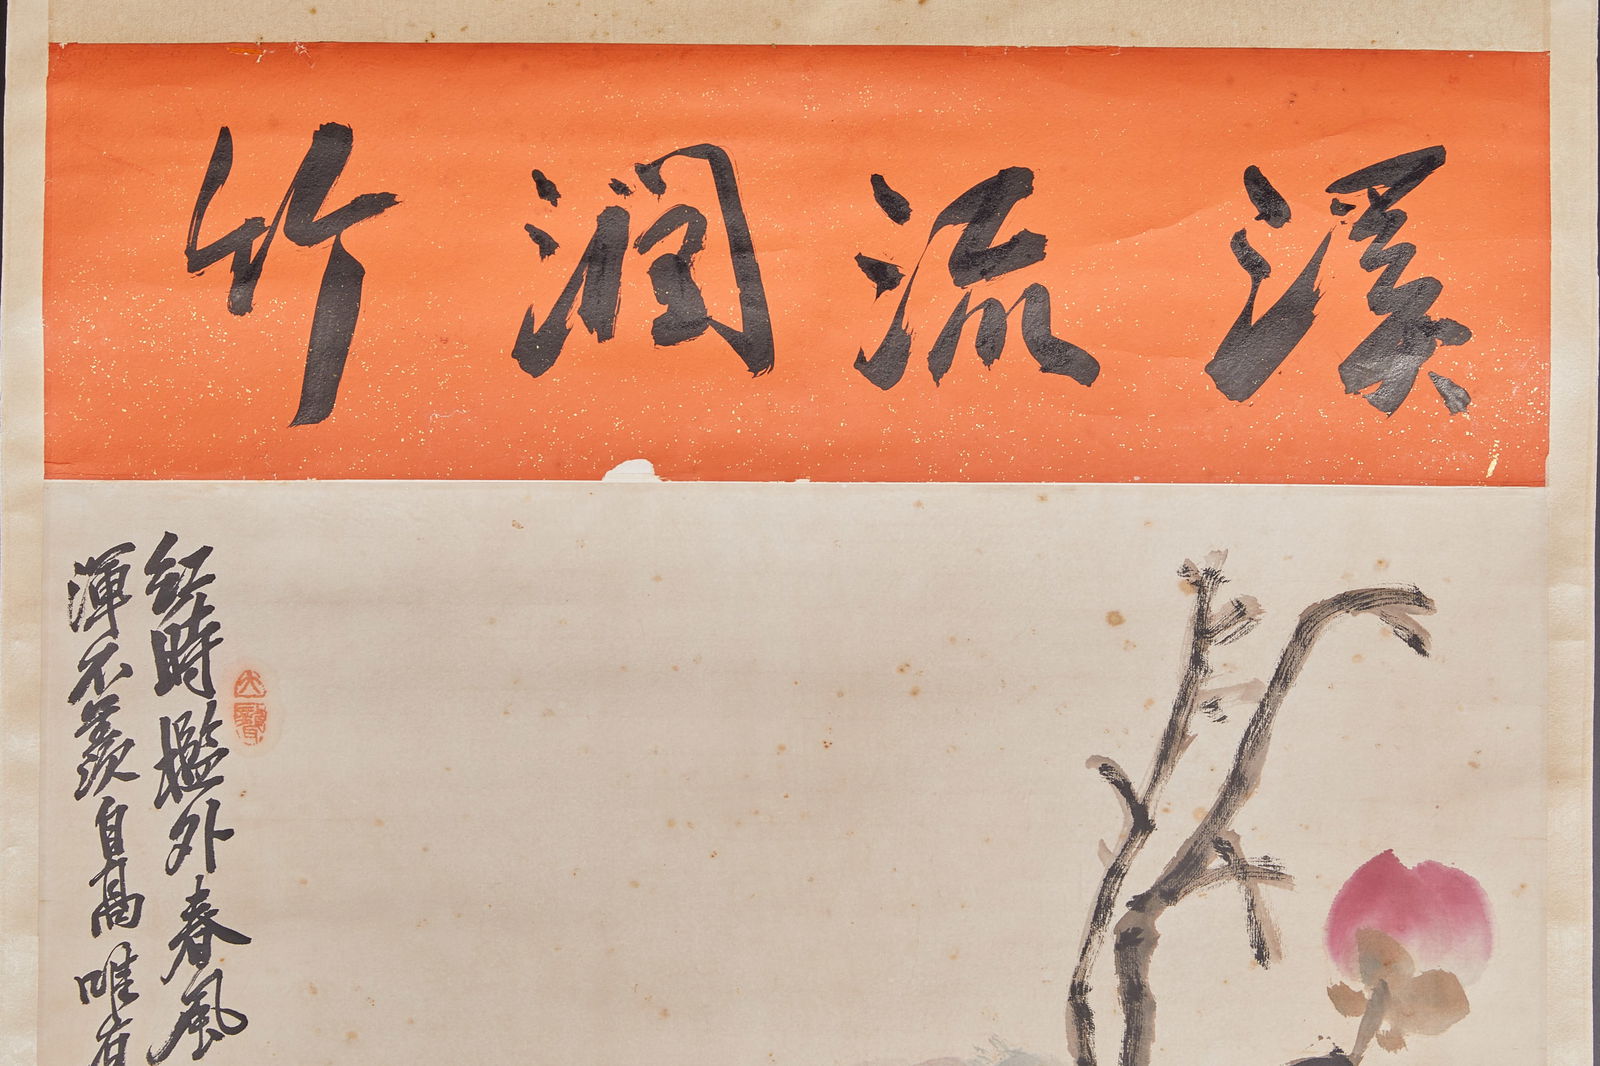 溪流润竹
紅時檻外春風
渾不羨自高唯有